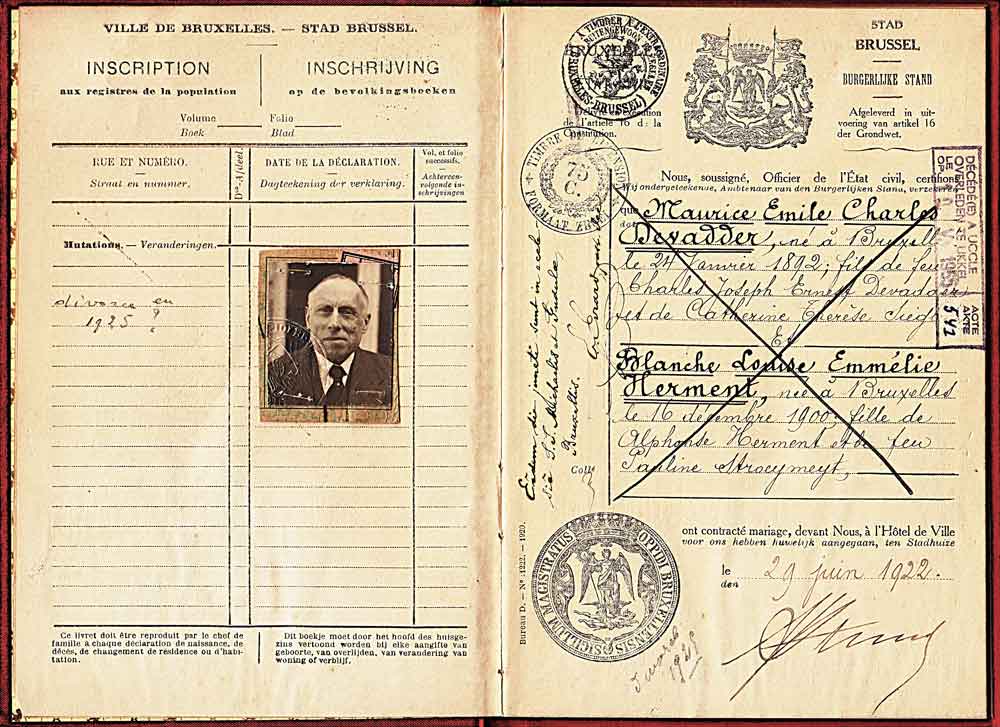 VILLE DE BRUXELLES. — STAD BRUSSEL.
INSCRIPTION
aux registres de la population
INSCHRIJVING
op de bevolkingsboeken
Volume
Boek
Folio
Blad
RUE ET NUMÉRO.
Straat en nummer.
Dᵒⁿ-Afdeel.
DATE DE LA DÉCLARATION.
Dagteekening der verklaring.
Vol. et folio
successifs.
Achtereen-
volgende in-
schrijvingen
Mutations. — Veranderingen.
divorce en
1925 ?
Ce livret doit être reproduit par le chef de
famille à chaque déclaration de naissance, de
décès, de changement de residence ou d'habi-
tation.
Dit boekje moet door het hoofd des huisge-
zins vertoond worden bij elke aangifte van
geboorte, van overlijden, van verandering van
woning of verblijf.
BRUXELLES
de l'article 16 de la
Constitution.
STAD
BRUSSEL
BURGERLIJKE STAND
Afgeleverd in uit-
voering van artikel 16
der Grondwet.
75
C.
DÉCÉDÉ(E) A UCCLE
OVERLEDEN TE UKKEL
LE
OP
ACTE
AKTE
542
Nous, soussigné, Officier de l'État civil, certifions
Wij ondergeteekende, Ambtenaar van den Burgerlijken Stand, verzekeren
que Maurice Emile Charles
dat
Devadder, né à Bruxelles
le 24 Janvier 1892; fils de feu
Charles Joseph Ernest Devadder
et de Catherine Thérèse
Et
Blanche Louise Emmélie
Herment, née à Bruxelles
le 16 décembre 1900; fille de
Alphonse Herment et de feu
Pauline
Eodem die juncti sunt in eccle-
sia S.S. Michaelis et Gudulae,
Bruxellis.
ont contracté mariage, devant Nous, à l'Hôtel de Ville
voor ons hebben huwelijk aangegaan, ten Stadhuize
le 29 juin 1922.
den
Bureau D. — Nº 1222. — 1920.
SIGILLUM MAGISTRATUS OPPIDI BRUXELLENSIS